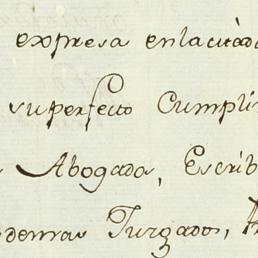 expresa enlacitada
superfecto Cumpli
Abogada, Escrib
demas Juzgados,